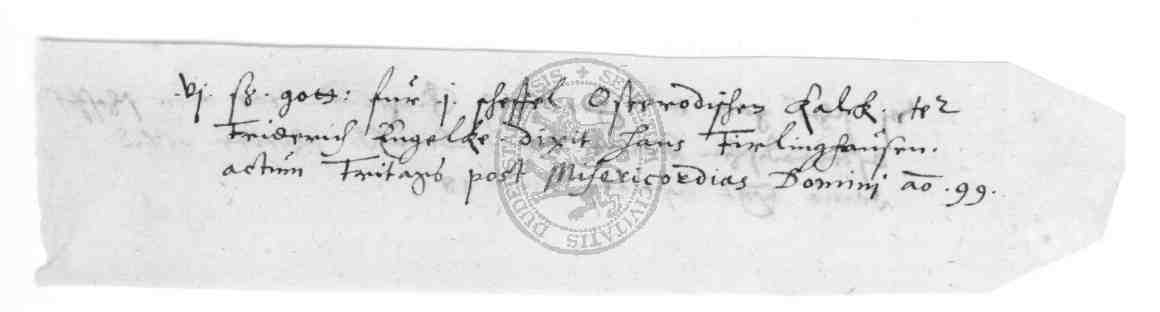 .vj. ß. gott: für .j. scheffel Osterrodischen Kalck. ter
Friderich Engelke dixit Hans Firlinghausen.
actum Fritags post Misericordias Domini ao .99.
SIS + SE CIVITATIS DUDER